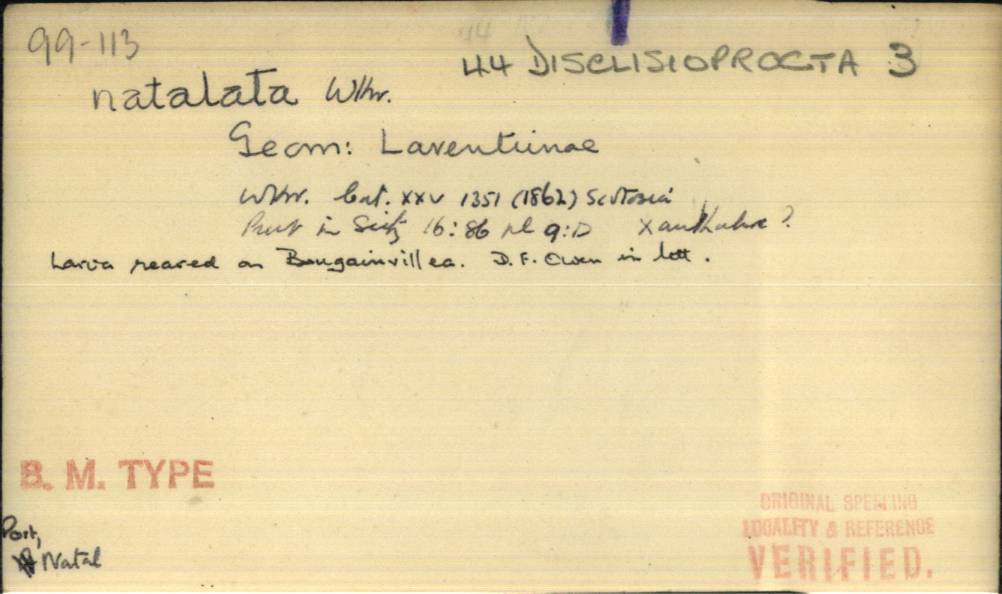 99-113
44 DISCLISIOPROCTA 3
natalata Wlkr.
Geom: Larentiinae
Wlkr. Cat. XXV 1351 (1862) Scotosia
Prout in Seitz 16:86 pl 9:D
Larva reared on Bougainvillea. D.F. Owen in litt.
B. M. TYPE
Port,
Natal
ORIGINAL SPELLING
LOCALITY & REFERENCE
VERIFIED.